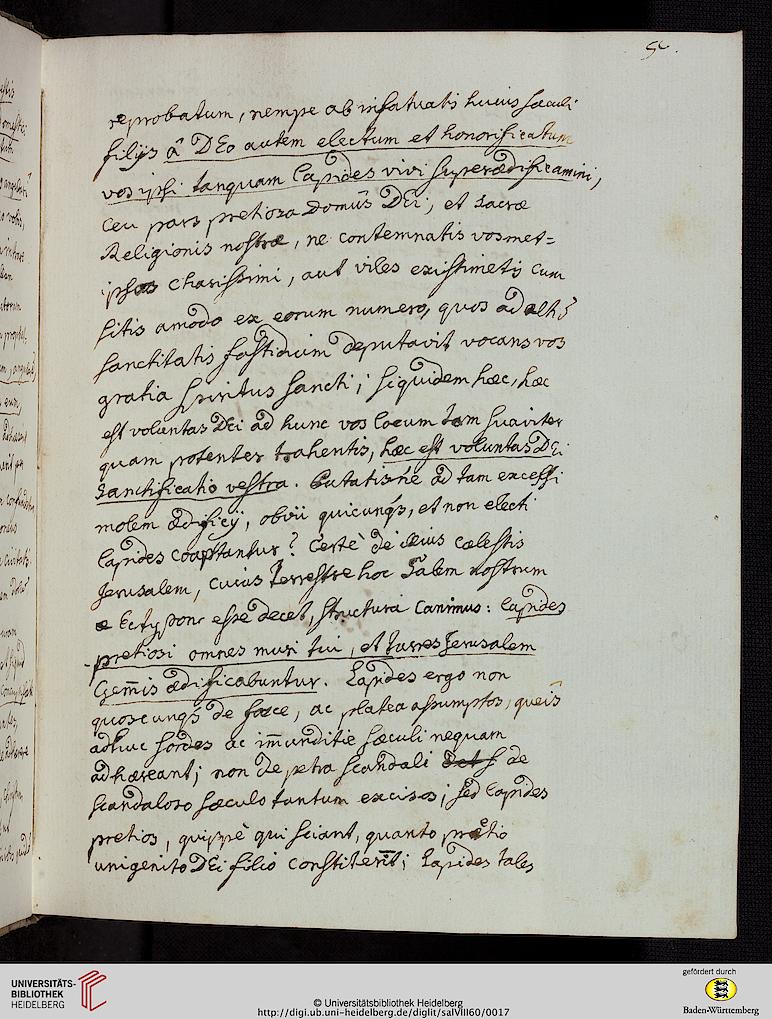 5.
reprobatum, nempe ab infatuatis huius sæculi
filijs â DEo autem electum et honorificatum
vos ipsi tanquam lapides vivi superædificamini,
ceu pars pretiosa Domûs DEi, et sacræ
Religionis nostræ, ne contemnatis vosmet=
ipsos charissimi, aut viles existimetis cum
sitis amodo ex eorum numero, quos ad
sanctitatis fastidium deputavit vocans vos
gratia spiritus sancti; siquidem hæc, hæc
est voluntas Dei ad hunc vos locum tam suaviter
quam potenter trahentis, hæc est voluntas DEi
Sanctificatio vestra. Putatisnè ad tam excelsi
molem ædificij, obvii quicunqs, et non electi
lapides coaptantur? Certè de illius cælestis
Jerusalem, cuius terrestre hoc Salem nostrum
Ectypon esse decet, structura canimus: lapides
pretiosi omnes muri tui, et turres Jerusalem
Gem̄is ædificabuntur. Lapides ergo non
quoscunqs de fæce, ac platea assumptos, queîs
adhuc sordes ac im̄unditiæ sæculi nequam
adhæreant; non de petra scandali de
scandaloso sæculo tantum excisos; sed lapides
pretios, quippè qui sciant, quanto prætio
unigenito DEi filio constiterīt; Lapides tales
UNIVERSITÄTS-
BIBLIOTHEK
HEIDELBERG
© Universitätsbibliothek Heidelberg
http://digi.ub.uni-heidelberg.de/diglit/salVIII60/0017
gefördert durch
Baden-Württemberg